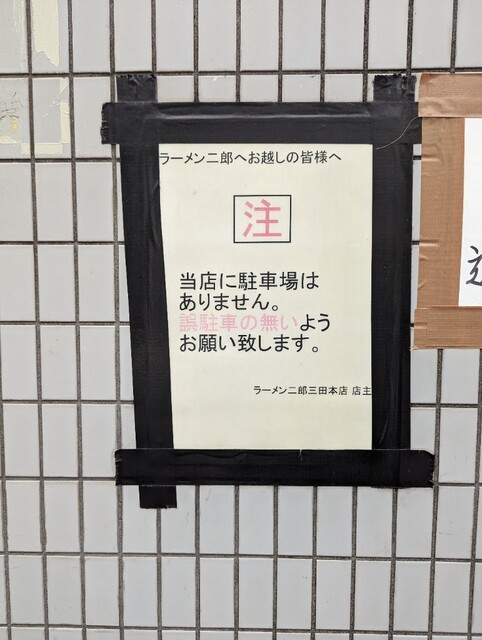 ラーメン二郎へお越しの皆様へ
注
当店に駐車場は
ありません。
誤駐車の無いよう
お願い致します。
ラーメン二郎三田本店 店主